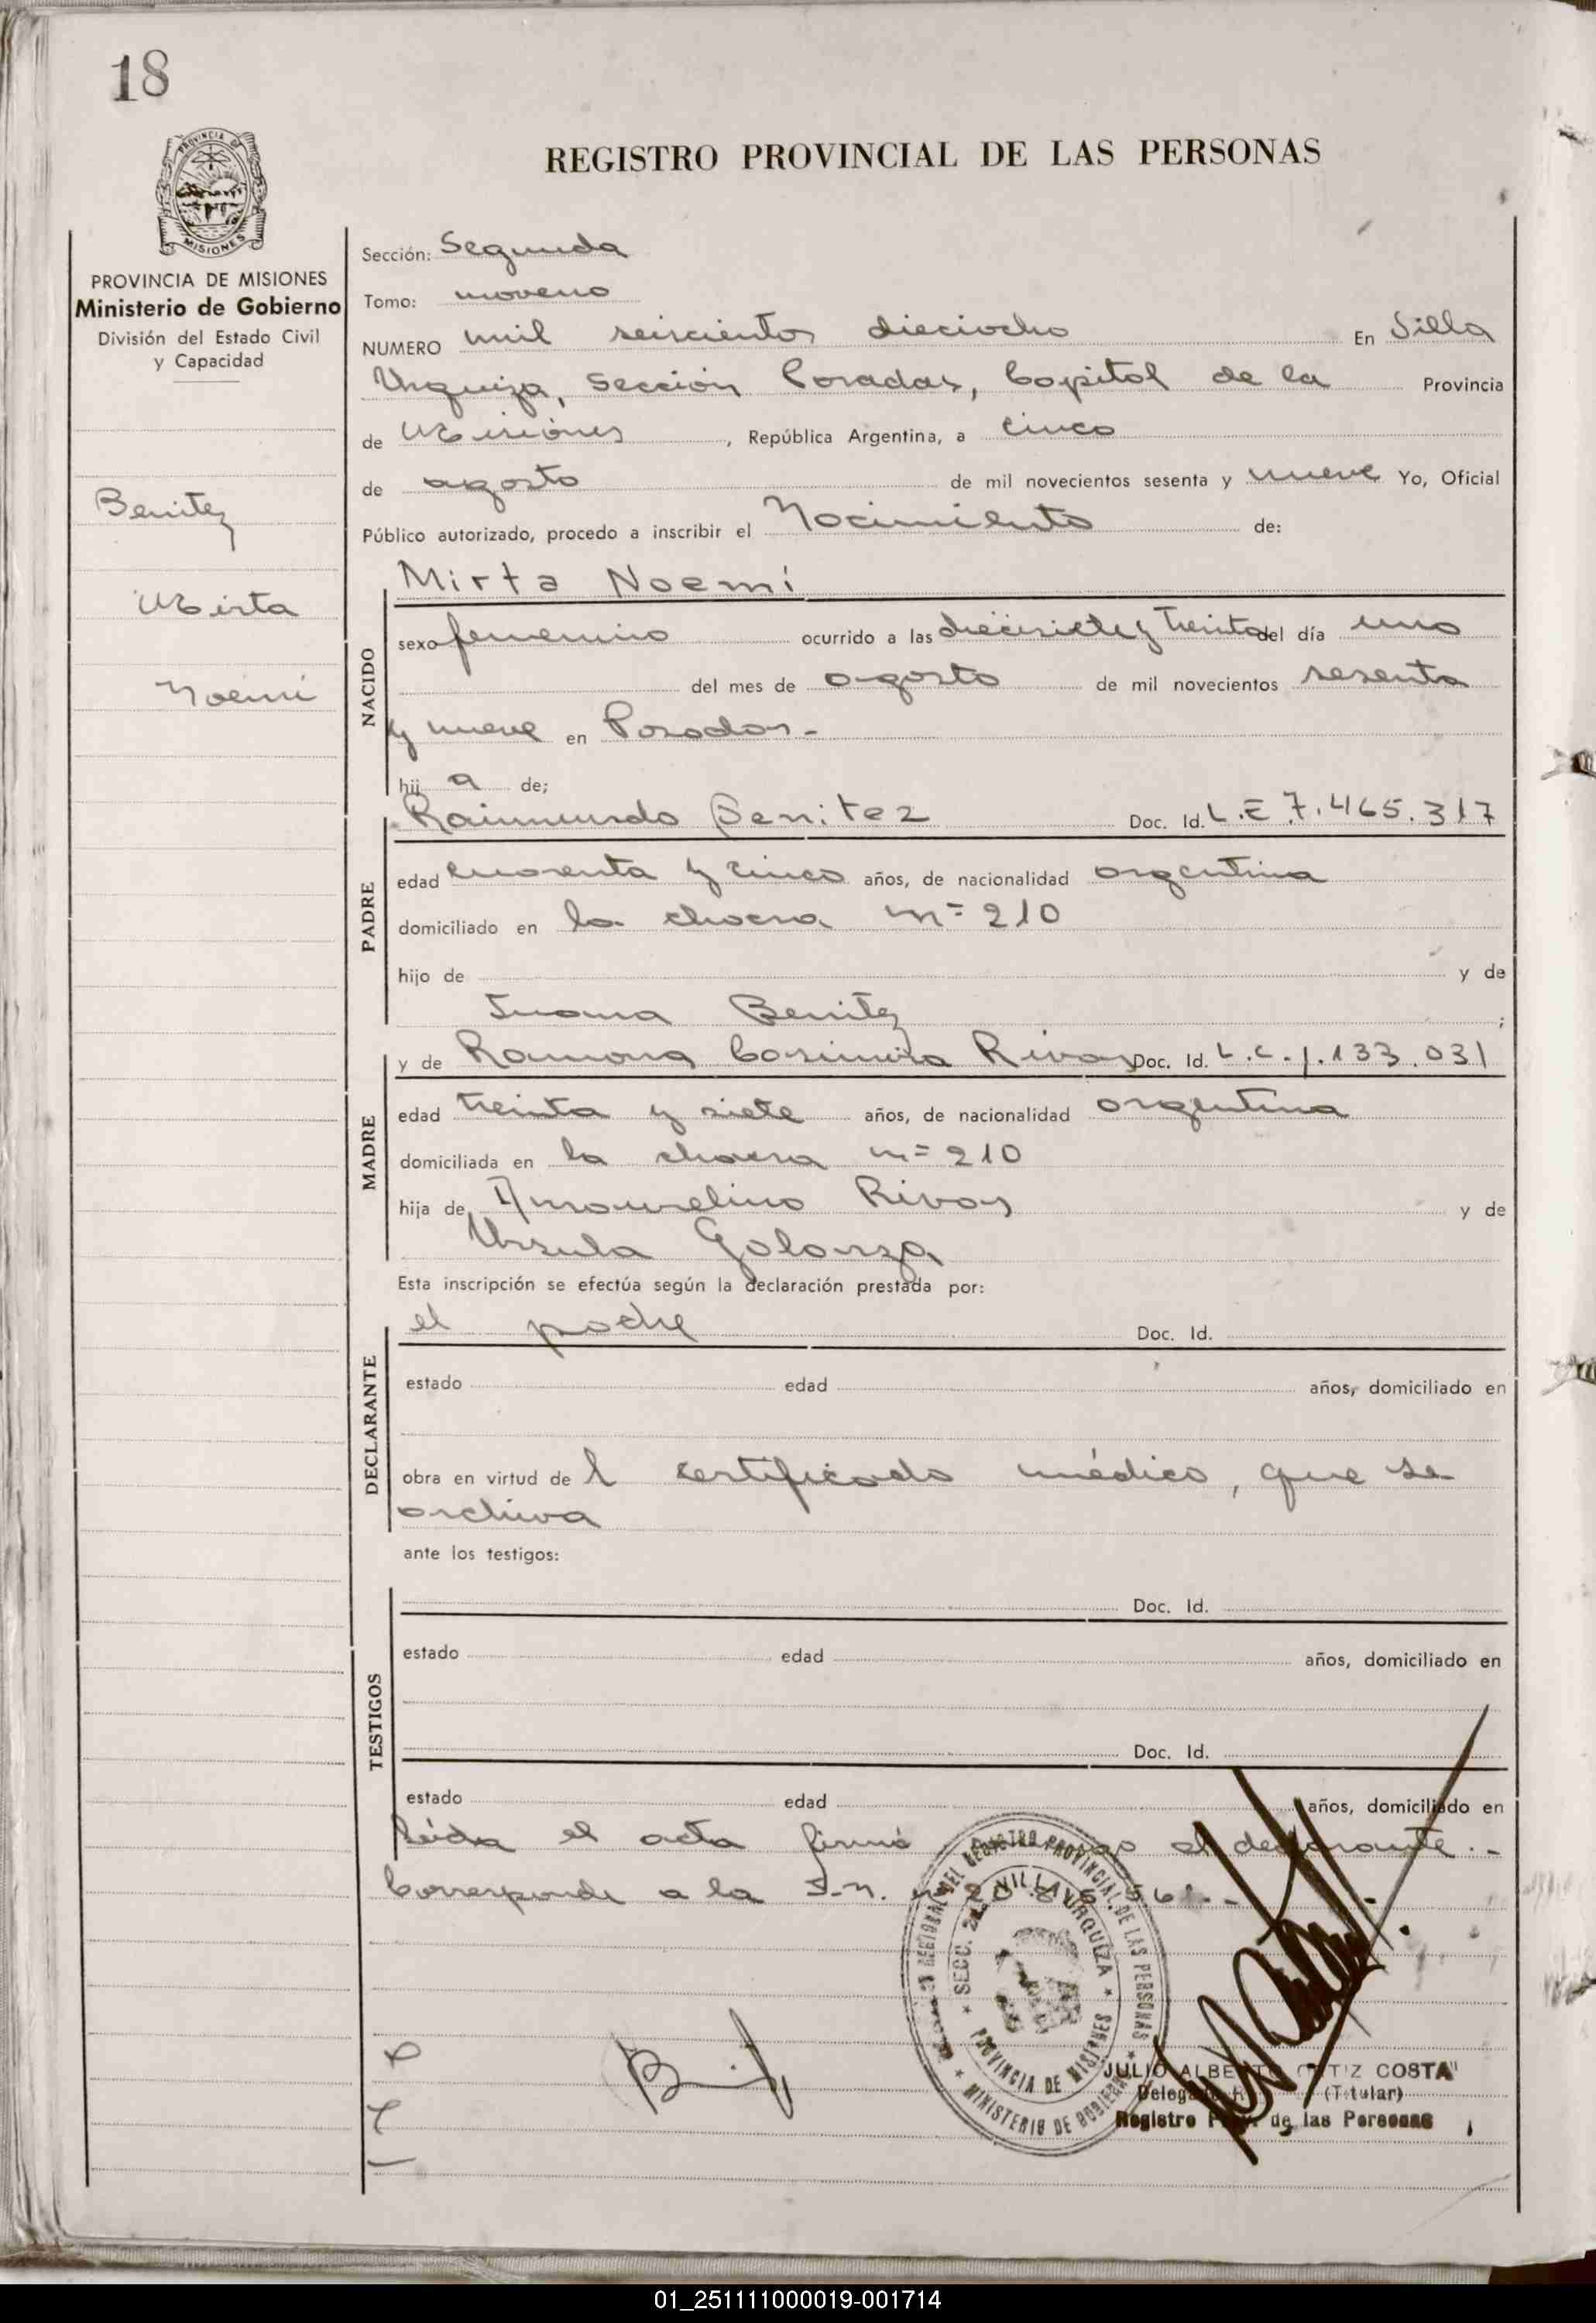 18
PROVINCIA
MISIONES
REGISTRO PROVINCIAL DE LAS PERSONAS
PROVINCIA DE MISIONES
Ministerio de Gobierno
División del Estado Civil
y Capacidad
Benitez
Mirta
Noemi
Sección: Segunda
Tomo: noveno
NUMERO mil seiscientos dieciocho En Villa
Urquiza, Sección Posadas, Capital de la Provincia
de Misiones, República Argentina, a cinco
de agosto de mil novecientos sesenta y nueve Yo, Oficial
Público autorizado, procedo a inscribir el Nacimiento de:
NACIDO
Mirta Noemí
sexo femenino ocurrido a las diecisiete y treinta del día uno
del mes de agosto de mil novecientos sesenta
y nueve en Posadas.-
hij a de;
PADRE
Raimundo Benitez Doc. Id. L.E 7.465.317
edad cuarenta y cinco años, de nacionalidad argentina
domiciliado en la chacra nº 210
hijo de y de
Juana Benitez ;
MADRE
y de Ramona Casimira Rivas Doc. Id. L.C. 1.133.031
edad treinta y siete años, de nacionalidad argentina
domiciliada en la chacra nº 210
hija de Rivas y de
Ursula Golarza
Esta inscripción se efectúa según la declaración prestada por:
DECLARANTE
el padre Doc. Id.
estado edad años, domiciliado en
obra en virtud de l certificado médico, que se
archiva
ante los testigos:
TESTIGOS
Doc. Id.
estado edad años, domiciliado en
Doc. Id.
estado edad años, domiciliado en
Leída el acta firmó el declarante.-
Corresponde a la
REGIONAL DEL REGISTRO PROVINCIAL DE LAS PERSONAS
MINISTERIO DE GOBIERNO
SECC. 2a VILLA URQUIZA
PROVINCIA DE MISIONES
JULIO ALBERTO ORTIZ COSTA
(Titular)
Registro de las Personas
01_251111000019-001714